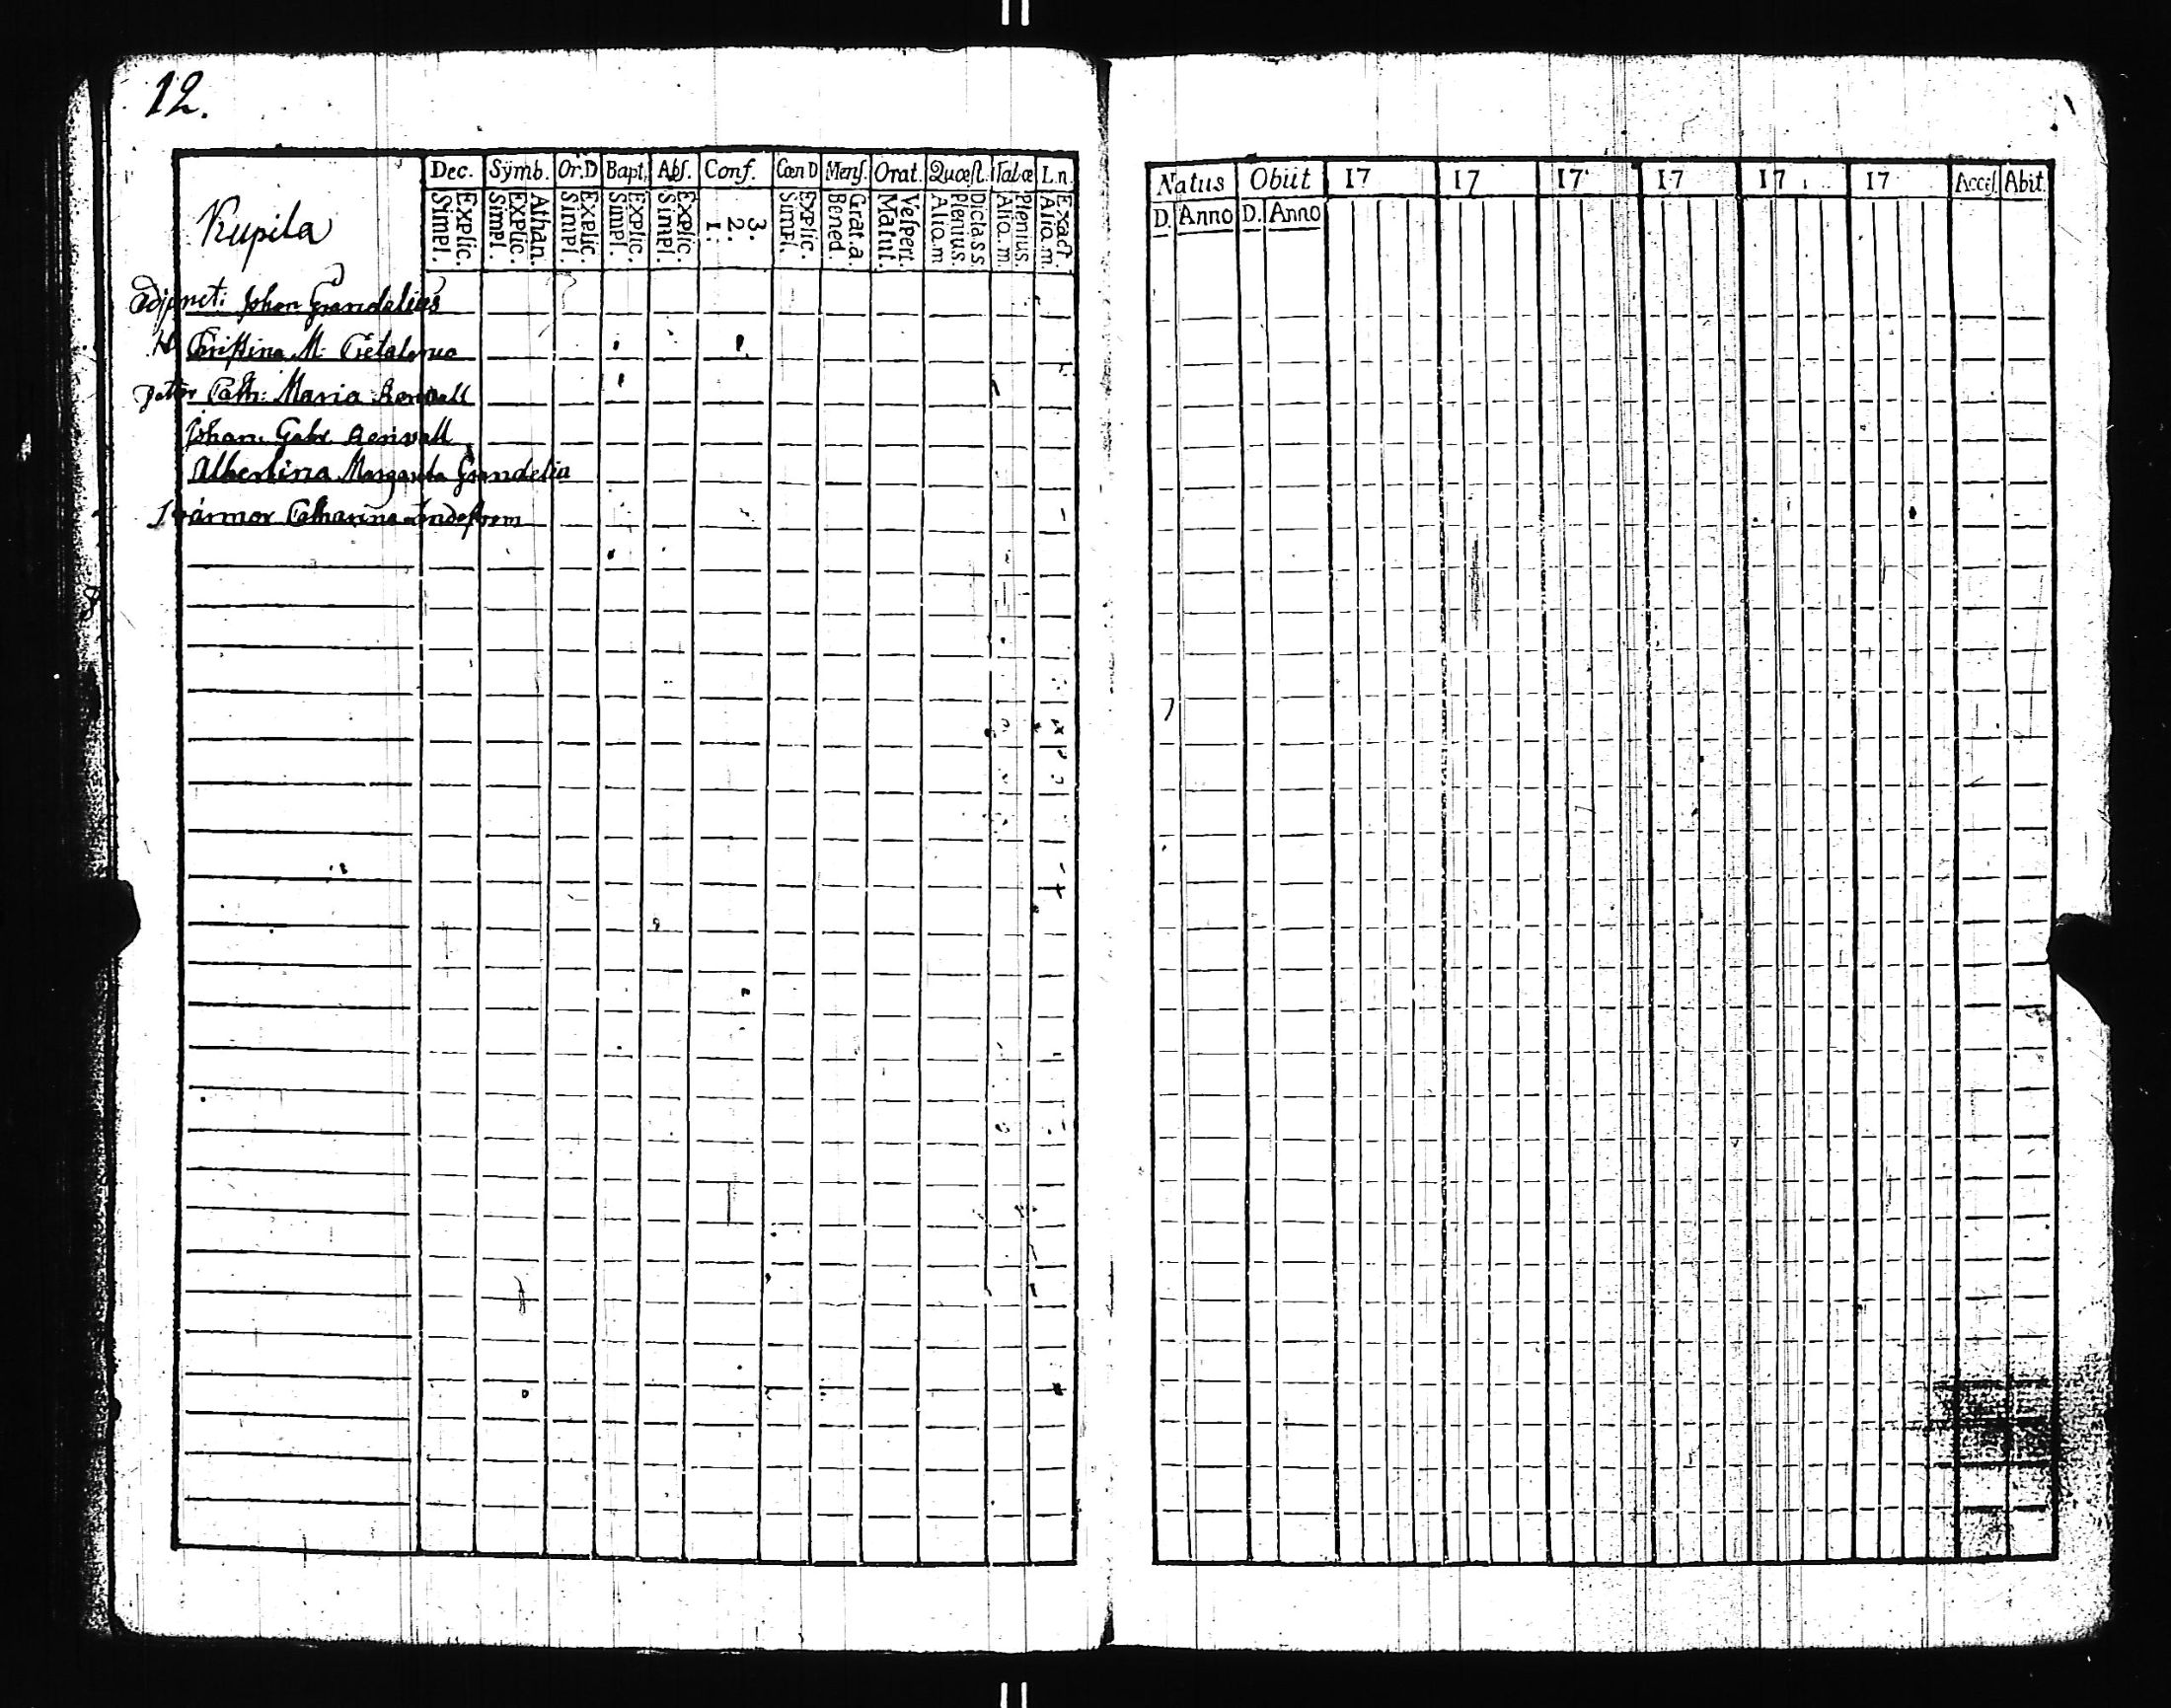 12.
Dec. Sÿmb. Or.D Bapt. Abſ. Conf. Cœn D Menſ. Orat. Quœſt. Tabœ L.n.
Explic. Simpl. Athan. Explic. Simpl. Explic. Simpl. Explic. Simpl. Explic. Simpl. 3. 2. 1. Explic. Simpl. Grat.a. Bened. Veſpert. Matut. Dicta s.s. Plenius. Aliq.m Plenius. Aliq.m. Exact. Aliq.m.
Kupila
Adjunct: Johan Grandelius
H Christina M:
Cath: Maria Renvall
Johan Gabr Renvall
Albertina Margareta Grandelia
Catharina Lindeström
Natus Obiit 17 17 17 17 17 17 Acceſ. Abit.
D. Anno D. Anno